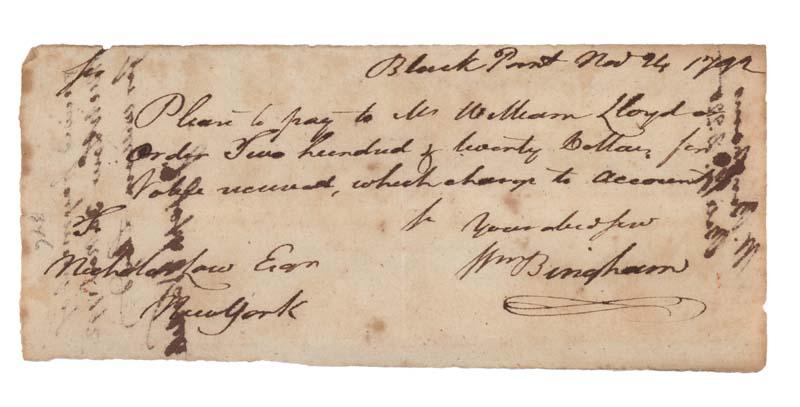 Black Point Nov 24 1792
Please to pay to Mr William Lloyd or
order Two hundred & twenty Dollars for
Value received, which charge to account
Sr Your obed Serv
To
Nicholas Low Esqr Wm Bingham
New York